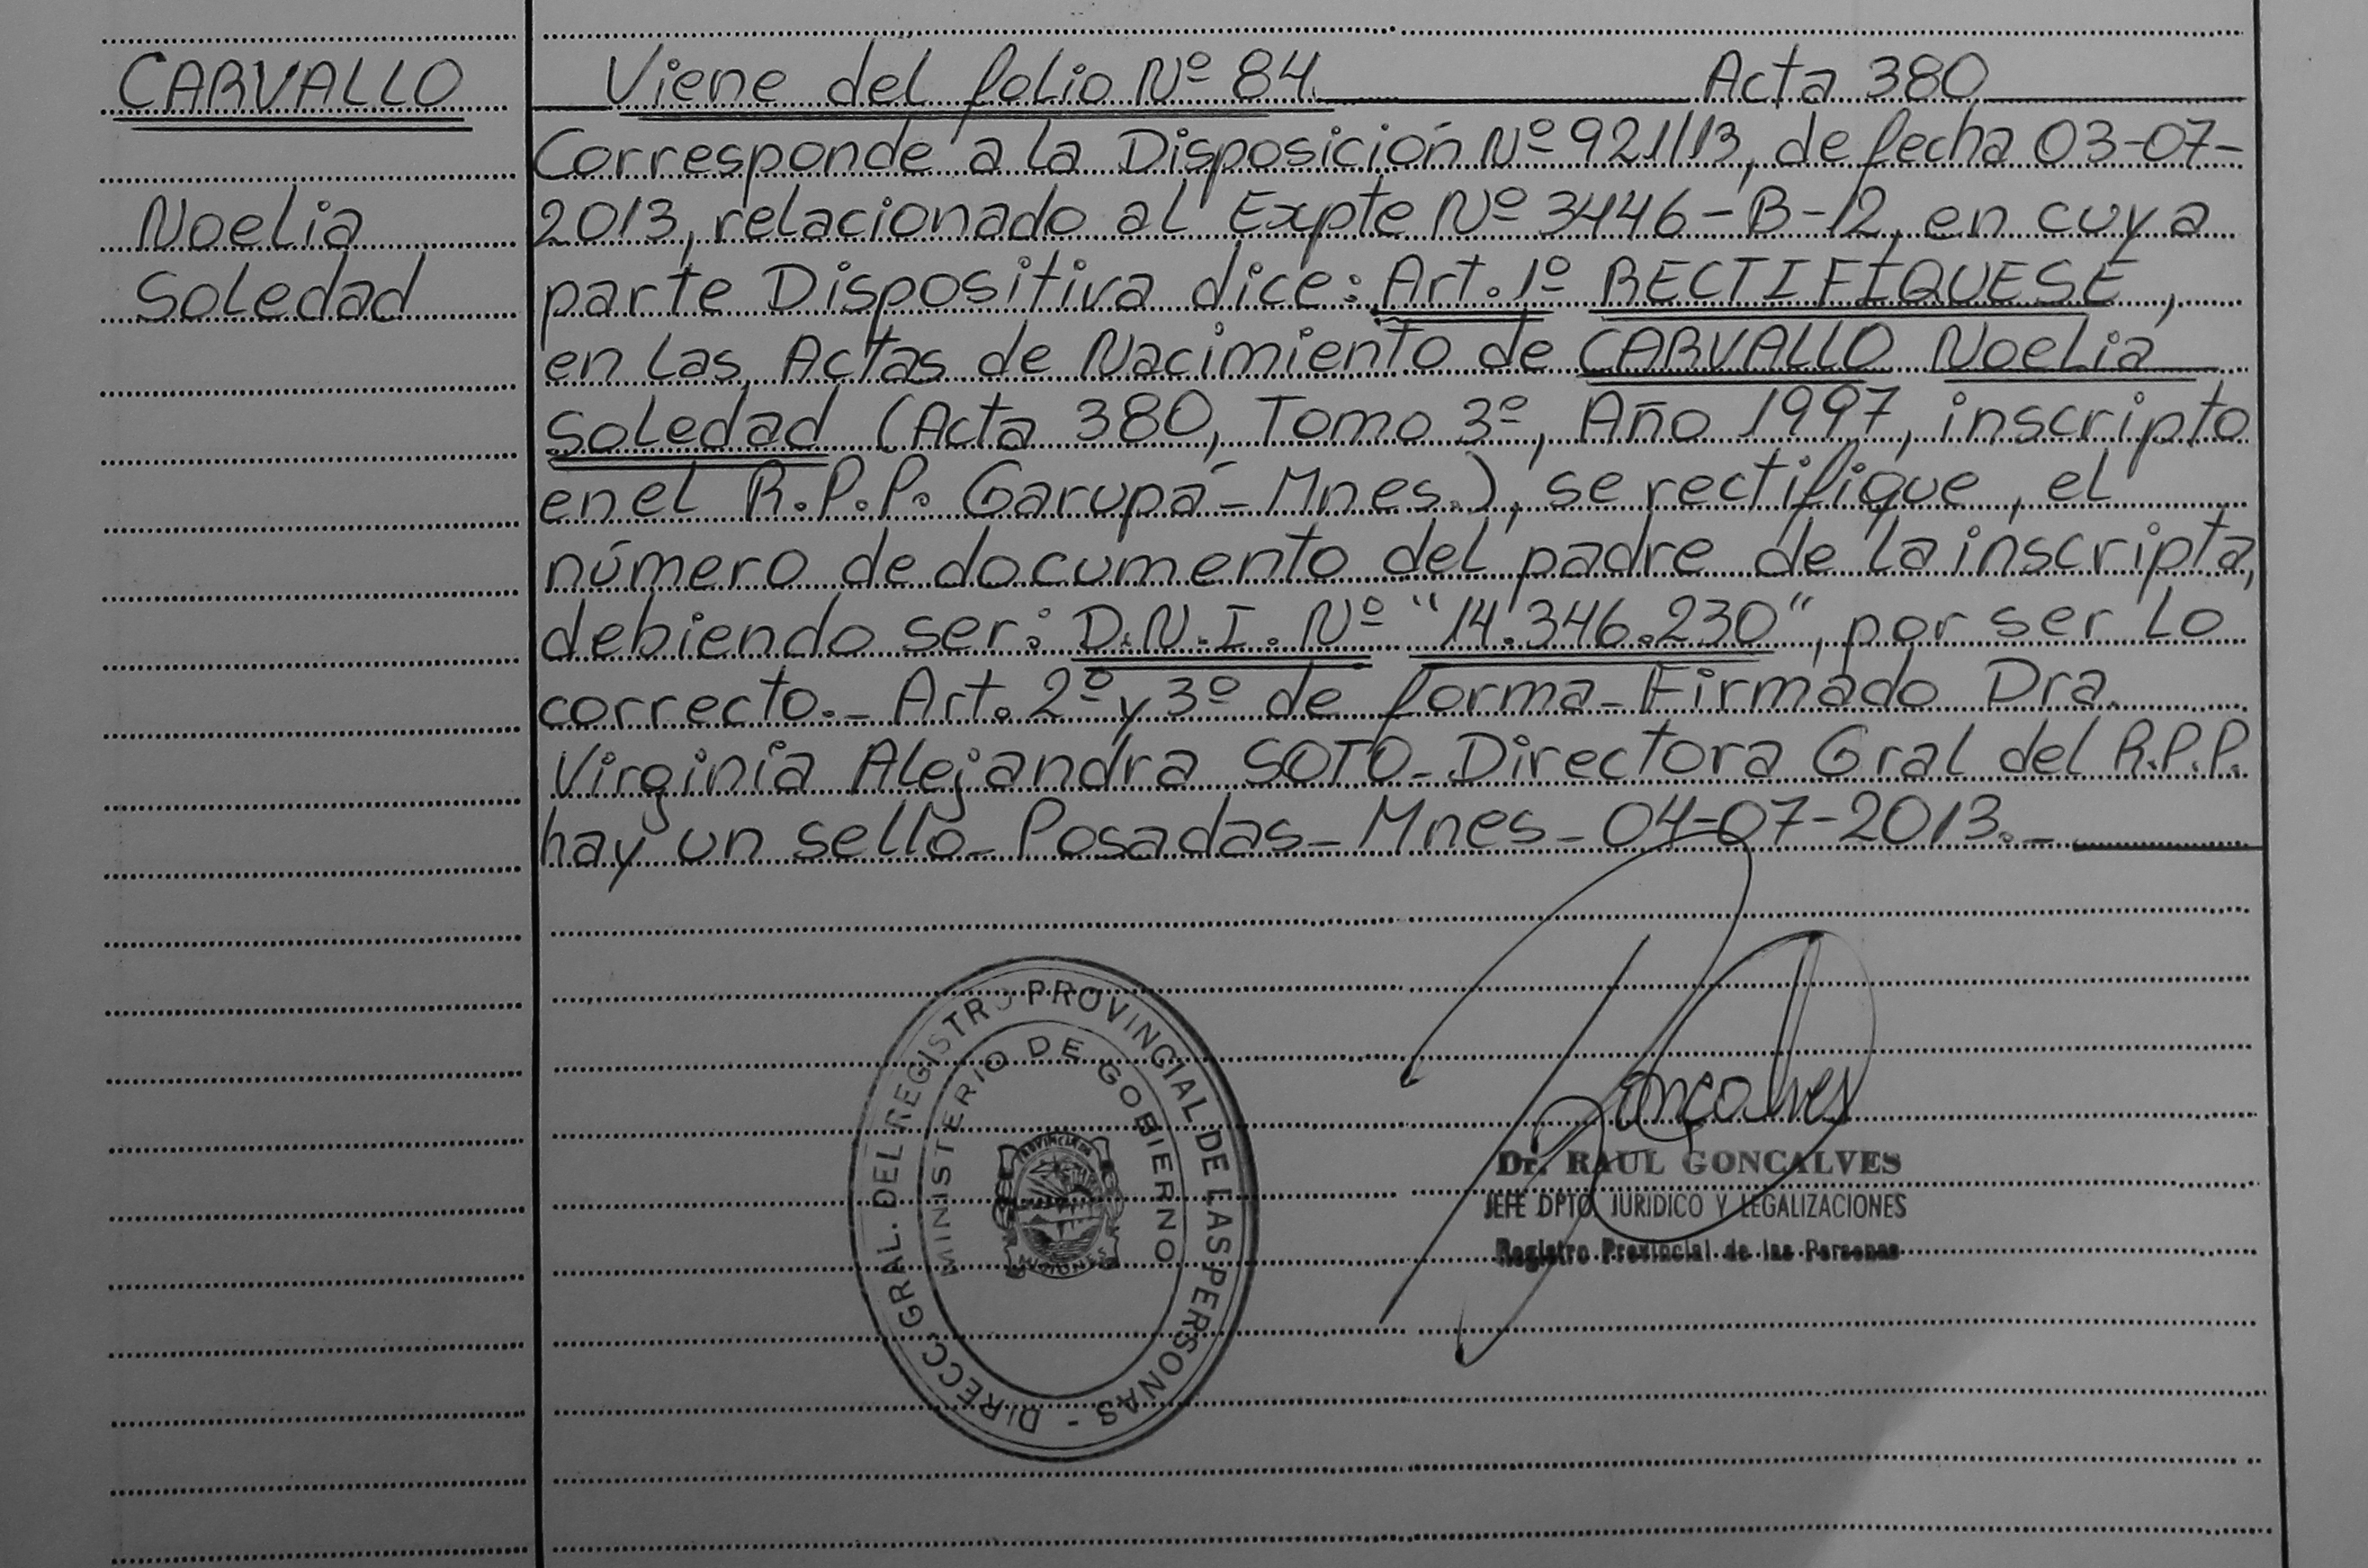 CARVALLO
Noelia
Soledad
Viene del folio Nº 84. Acta 380
Corresponde a la Disposición Nº 921/13, de fecha 03-07-
2013, relacionado al Expte Nº 3446-B-12, en cuya
parte Dispositiva dice: Art. 1º RECTIFIQUESE,
en las Actas de Nacimiento de CARVALLO Noelia
Soledad (Acta 380, Tomo 3º, Año 1997, inscripto
en el R.P.P. Garupá - Mnes.), se rectifique, el
número de documento del padre de la inscripta,
debiendo ser: D.N.I. Nº "14.346.230", por ser lo
correcto.- Art. 2º y 3º de forma - Firmado Dra.
Virginia Alejandra SOTO - Directora Gral del R.P.P.
hay un sello - Posadas - Mnes - 04-07-2013.-
DIRECC. GRAL. DEL REGISTRO PROVINCIAL DE LAS PERSONAS -
MINISTERIO DE GOBIERNO
PROVINCIA DE
MISIONES
Goncalves
Dr. RAUL GONCALVES
JEFE DPTO. JURIDICO Y LEGALIZACIONES
Registro Provincial de las Personas